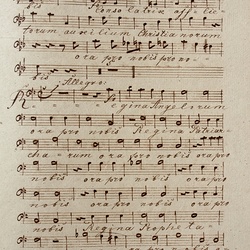 bis Consolatrix afflic
torum auxilium Christianorum
ora pro nobis ora pro no
bis
Allegro
Regina Angelorum
ora pro nobis Regina Patriar
charum ora pro nobis ora pro
nobis ora pro nobis ora pro
nobis ora pro nobis ora pro
nobis Regina Propheta